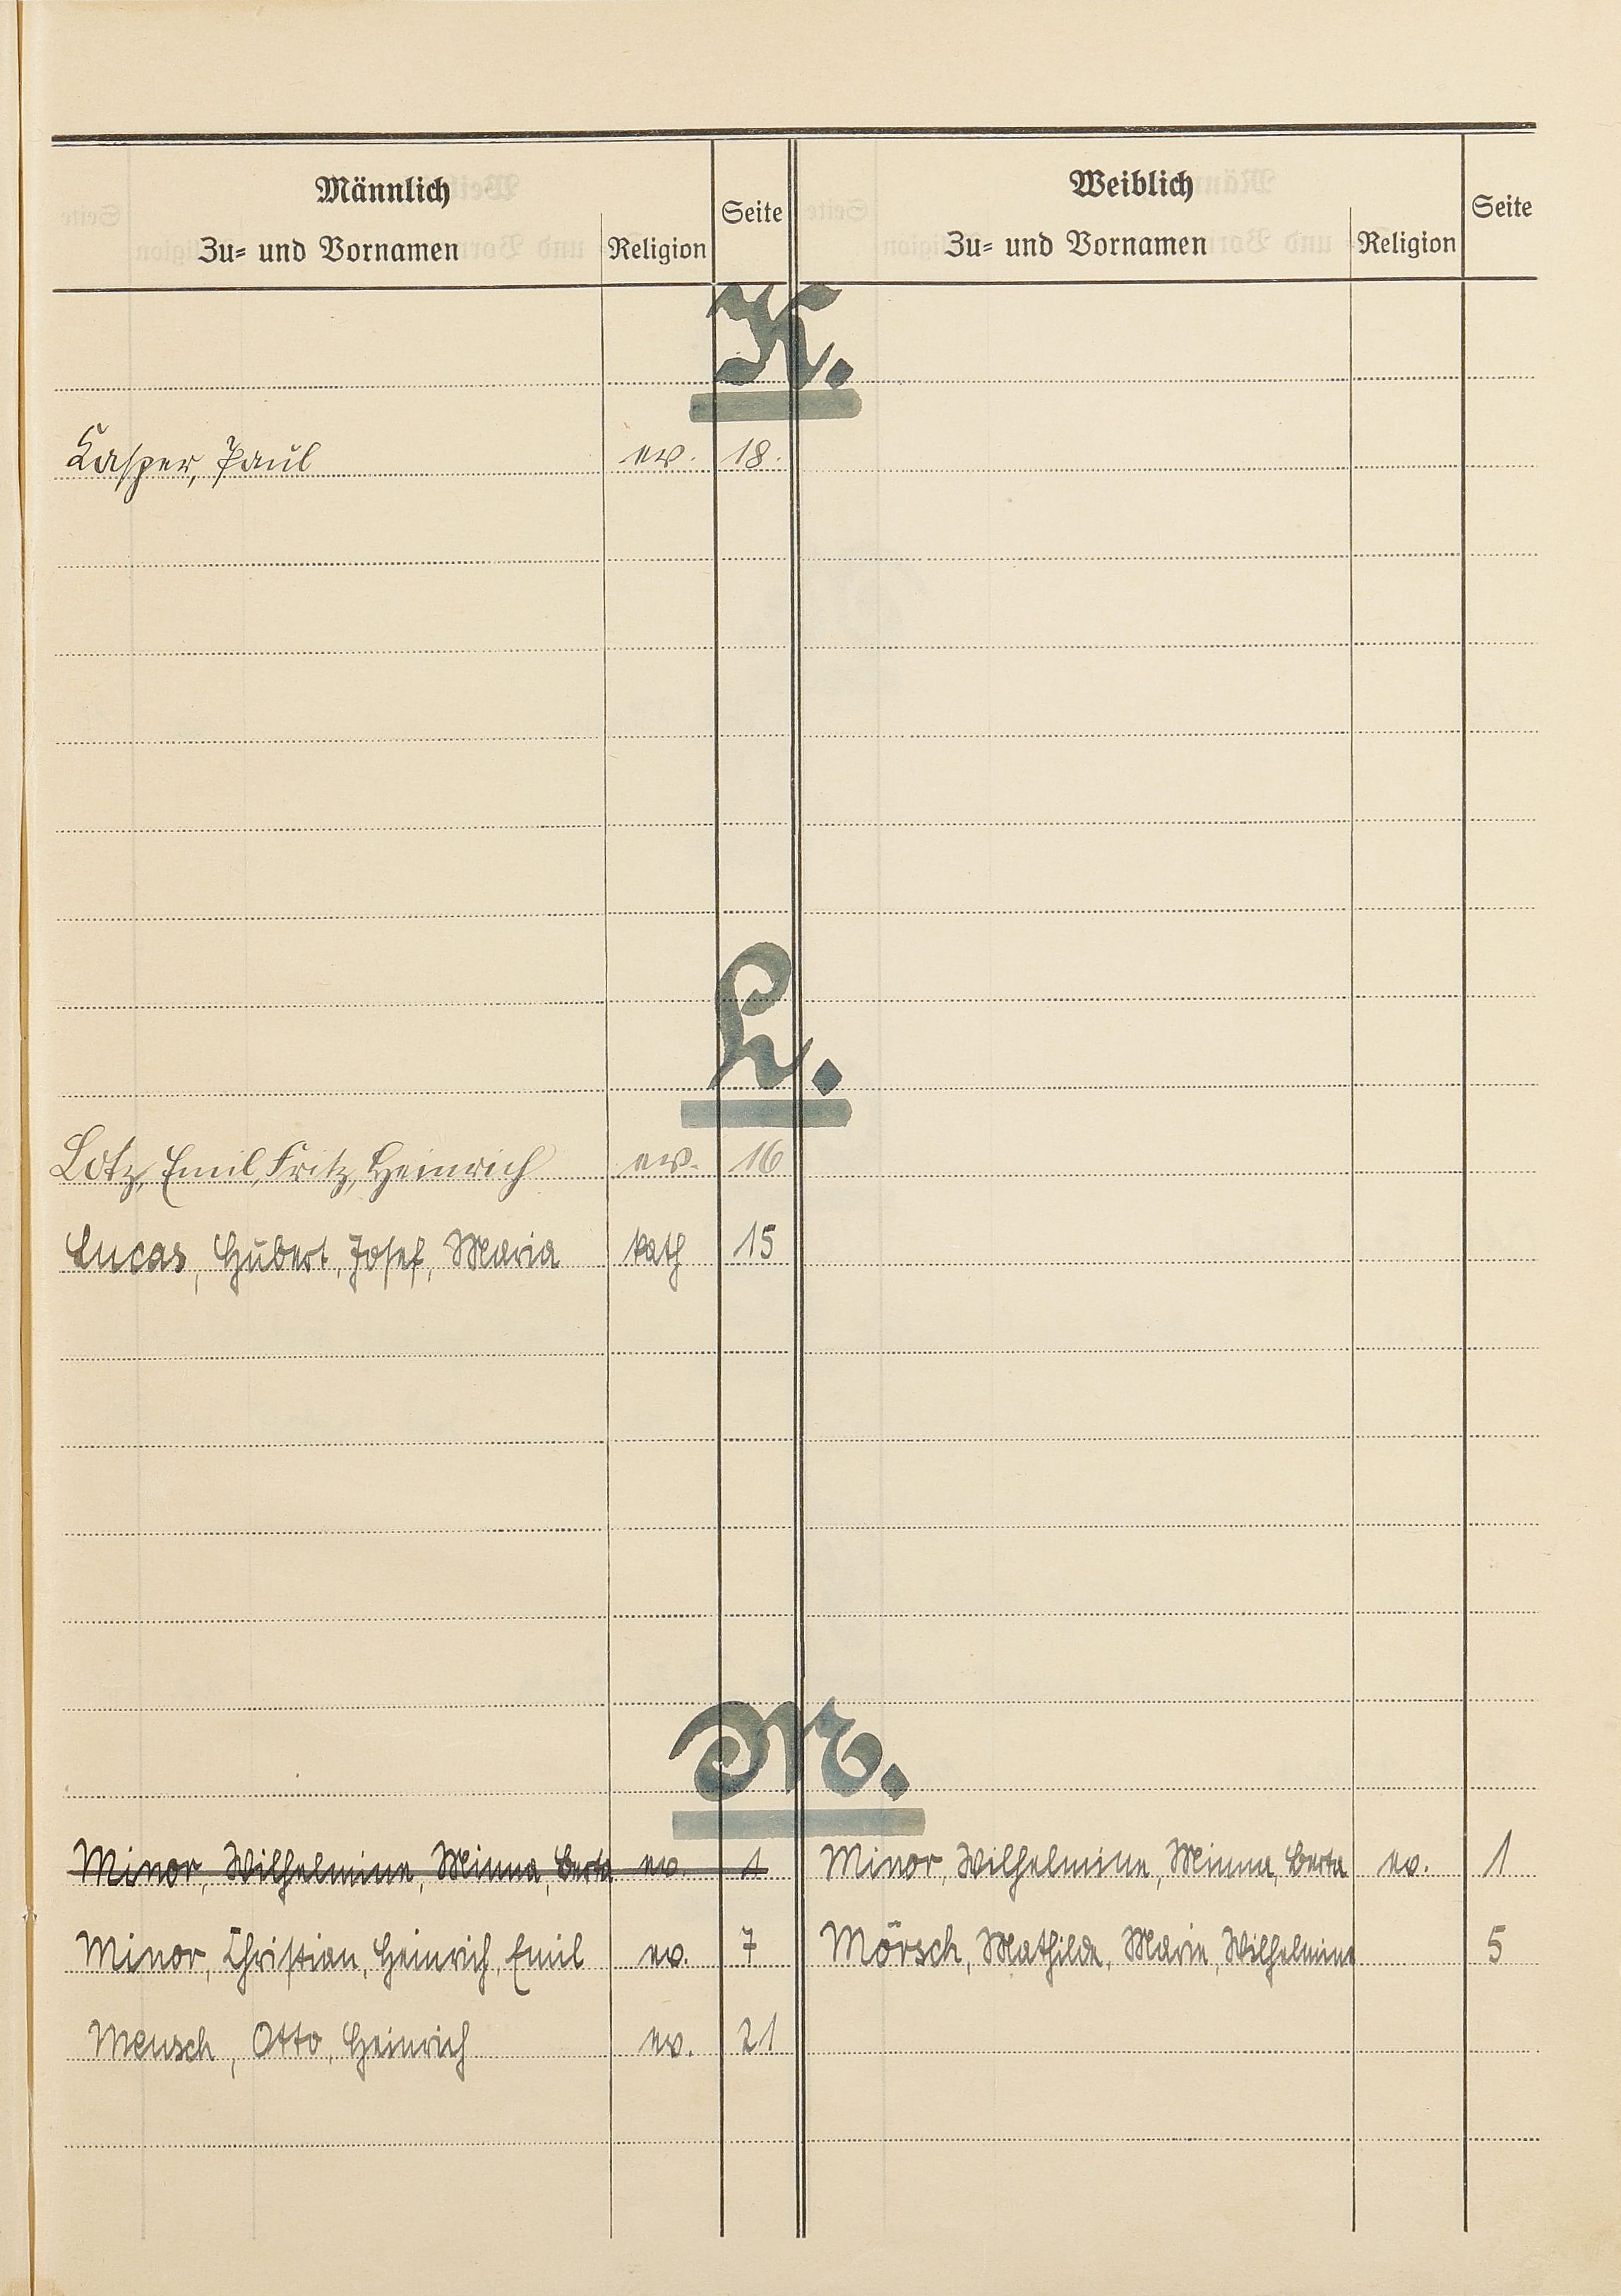 Männlich Weiblich
Seite Seite
Zu- und Vornamen Religion Zu- und Vornamen Religion
K.
Kasper, Paul ev. 18.
L.
Lotz, Emil, Fritz, Heinrich ev. 16
Lucas, Hubert, Josef, Maria kath 15
M.
Minor, Wilhelmine, Minna, Berta ev. 1 Minor, Wilhelmine, Minna, Berta ev. 1
Minor, Christian, Heinrich, Emil ev. 7 Mörsch, Mathilde, Marie, Wilhelmine 5
Mensch, Otto, Heinrich ev. 21